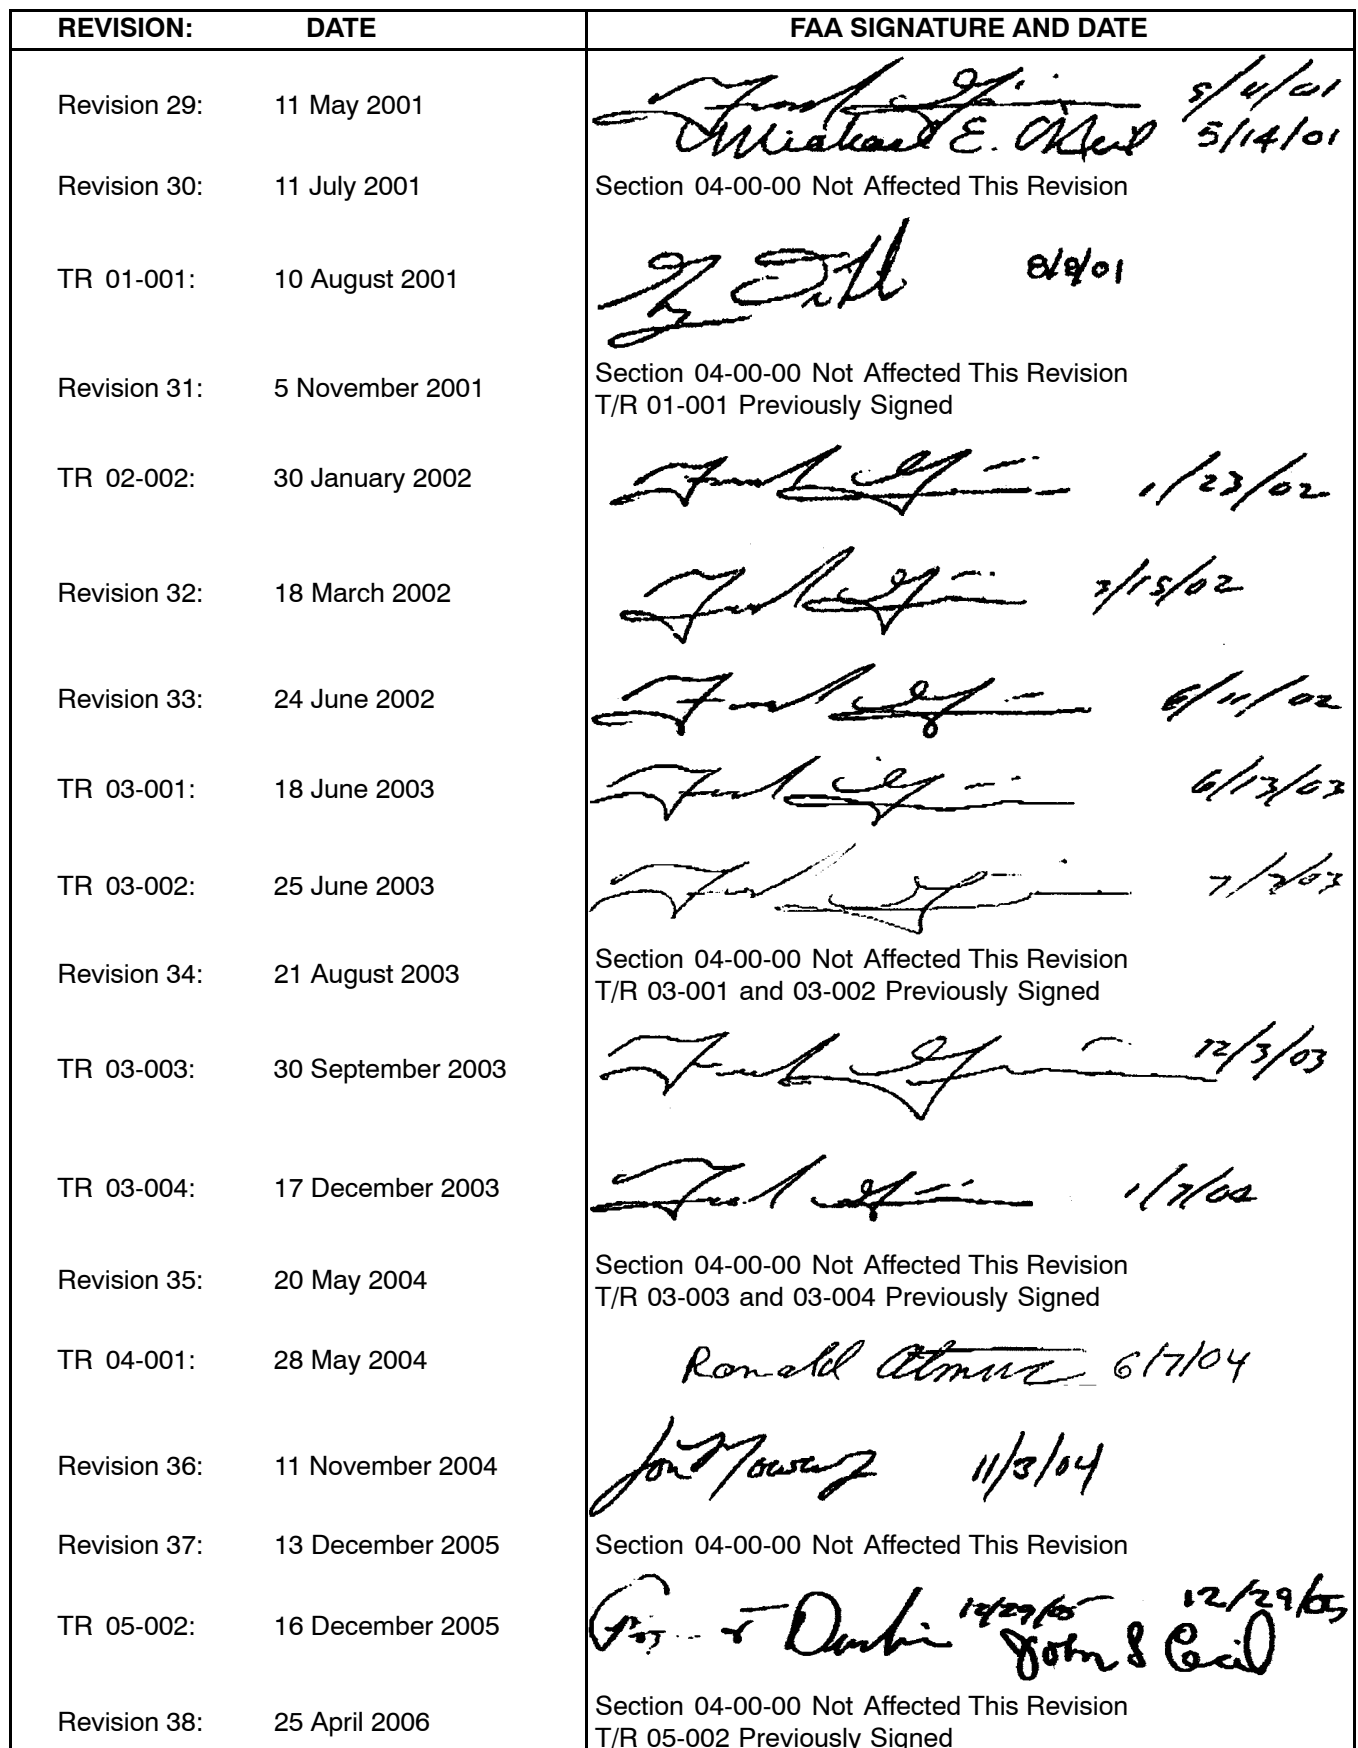 REVISION: DATE FAA SIGNATURE AND DATE
Revision 29: 11 May 2001 5/4/01
Michael E. O'Neil 5/14/01
Revision 30: 11 July 2001 Section 04-00-00 Not Affected This Revision
TR 01-001: 10 August 2001 8/8/01
Revision 31: 5 November 2001 Section 04-00-00 Not Affected This Revision
T/R 01-001 Previously Signed
TR 02-002: 30 January 2002 1/23/02
Revision 32: 18 March 2002 3/15/02
Revision 33: 24 June 2002 6/11/02
TR 03-001: 18 June 2003 6/13/03
TR 03-002: 25 June 2003 7/2/03
Revision 34: 21 August 2003 Section 04-00-00 Not Affected This Revision
T/R 03-001 and 03-002 Previously Signed
TR 03-003: 30 September 2003 12/3/03
TR 03-004: 17 December 2003 1/7/04
Revision 35: 20 May 2004 Section 04-00-00 Not Affected This Revision
T/R 03-003 and 03-004 Previously Signed
TR 04-001: 28 May 2004 Ronald 6/7/04
Revision 36: 11 November 2004 Jon 11/3/04
Revision 37: 13 December 2005 Section 04-00-00 Not Affected This Revision
TR 05-002: 16 December 2005 Durbin 12/29/05 12/29/05
John S Cecil
Revision 38: 25 April 2006 Section 04-00-00 Not Affected This Revision
T/R 05-002 Previously Signed